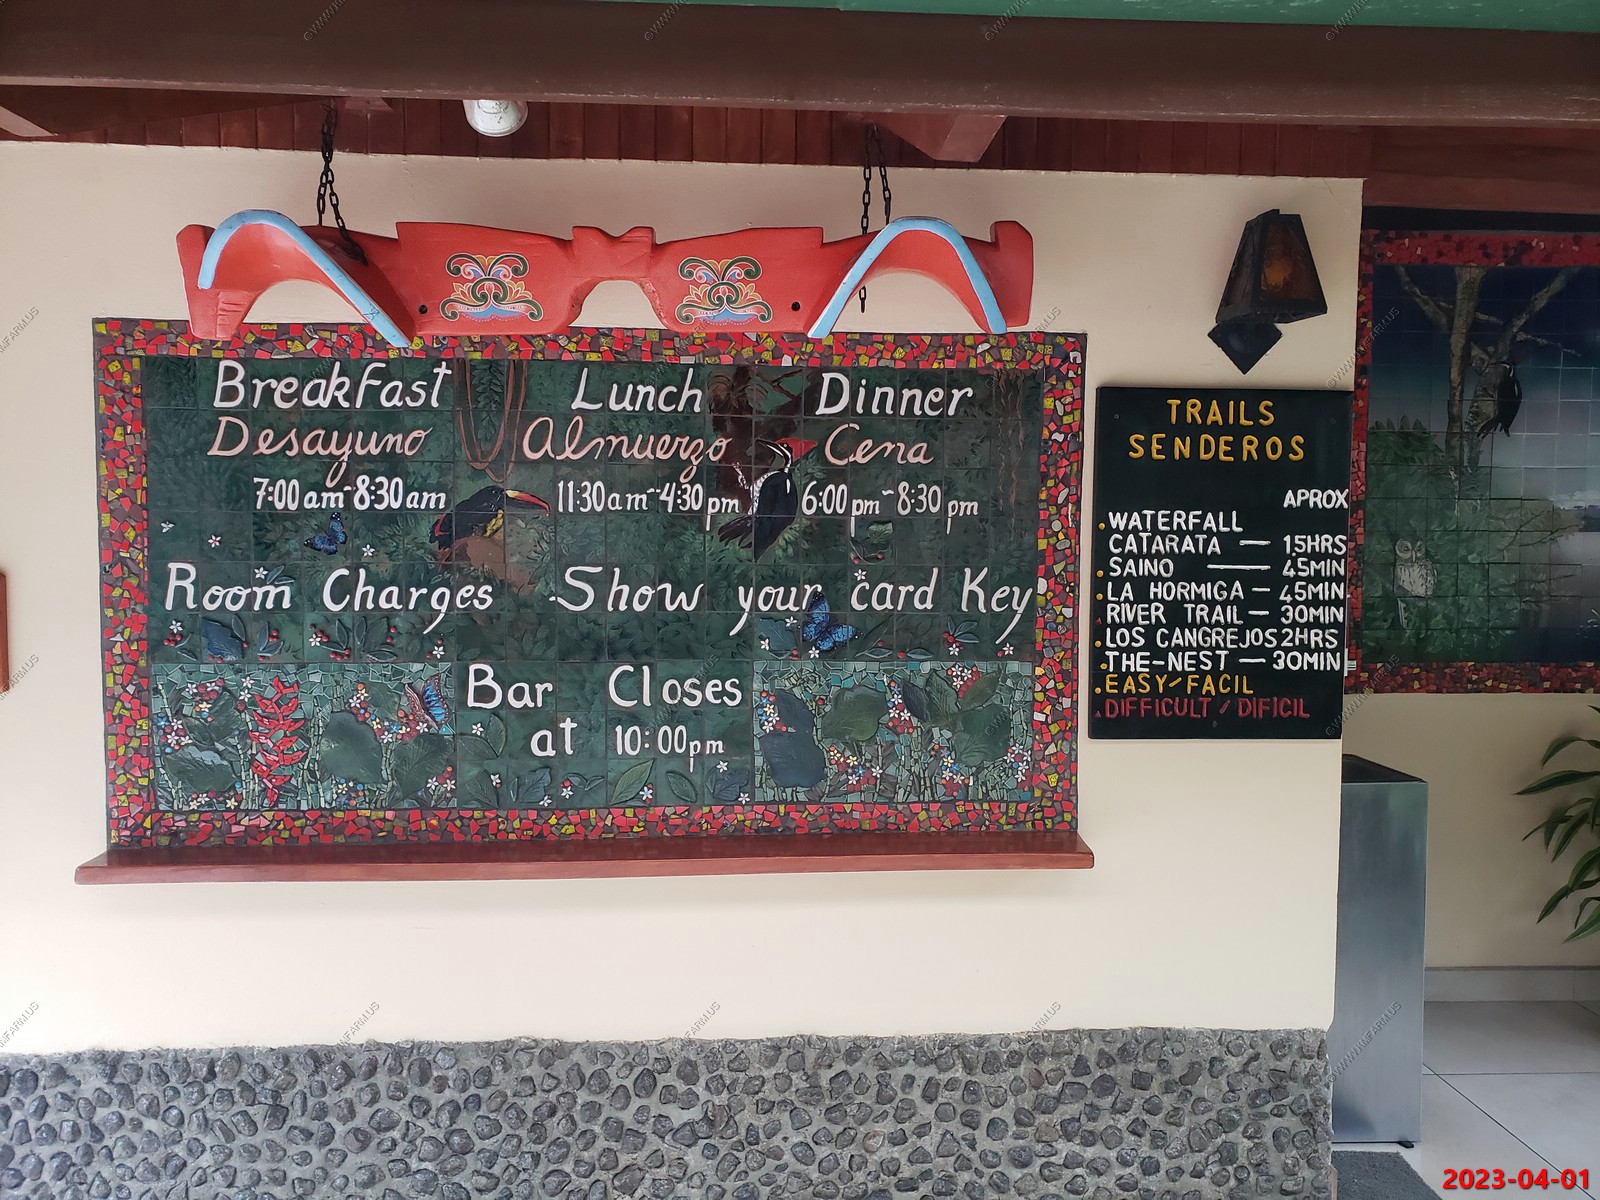 Breakfast Lunch Dinner
Desayuno Almuerzo Cena
7:00 am~8:30 am 11:30 am~4:30 pm 6:00 pm~8:30 pm
Room Charges Show your card Key
Bar Closes
at 10:00 pm
TRAILS
SENDEROS
APROX
WATERFALL
CATARATA — 1.5HRS
SAINO — 45MIN
LA HORMIGA — 45MIN
RIVER TRAIL — 30MIN
LOS CANGREJOS 2HRS
THE-NEST — 30MIN
EASY/FACIL
DIFFICULT/DIFICIL
2023-04-01